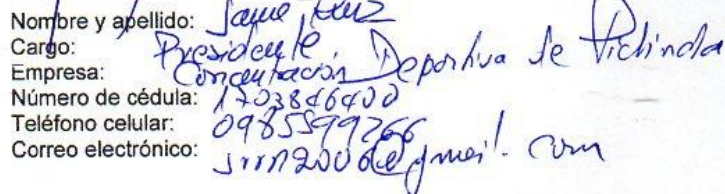 Nombre y apellido: Jaime Ruiz
Cargo: Presidente
Empresa: Concentración Deportiva de Pichincha
Número de cédula: 1703846400
Teléfono celular: 0985599266
Correo electrónico: @gmail.com